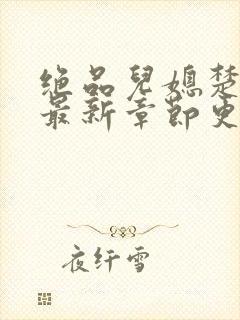 绝品儿媳楚
最新章节更
夜纤雪